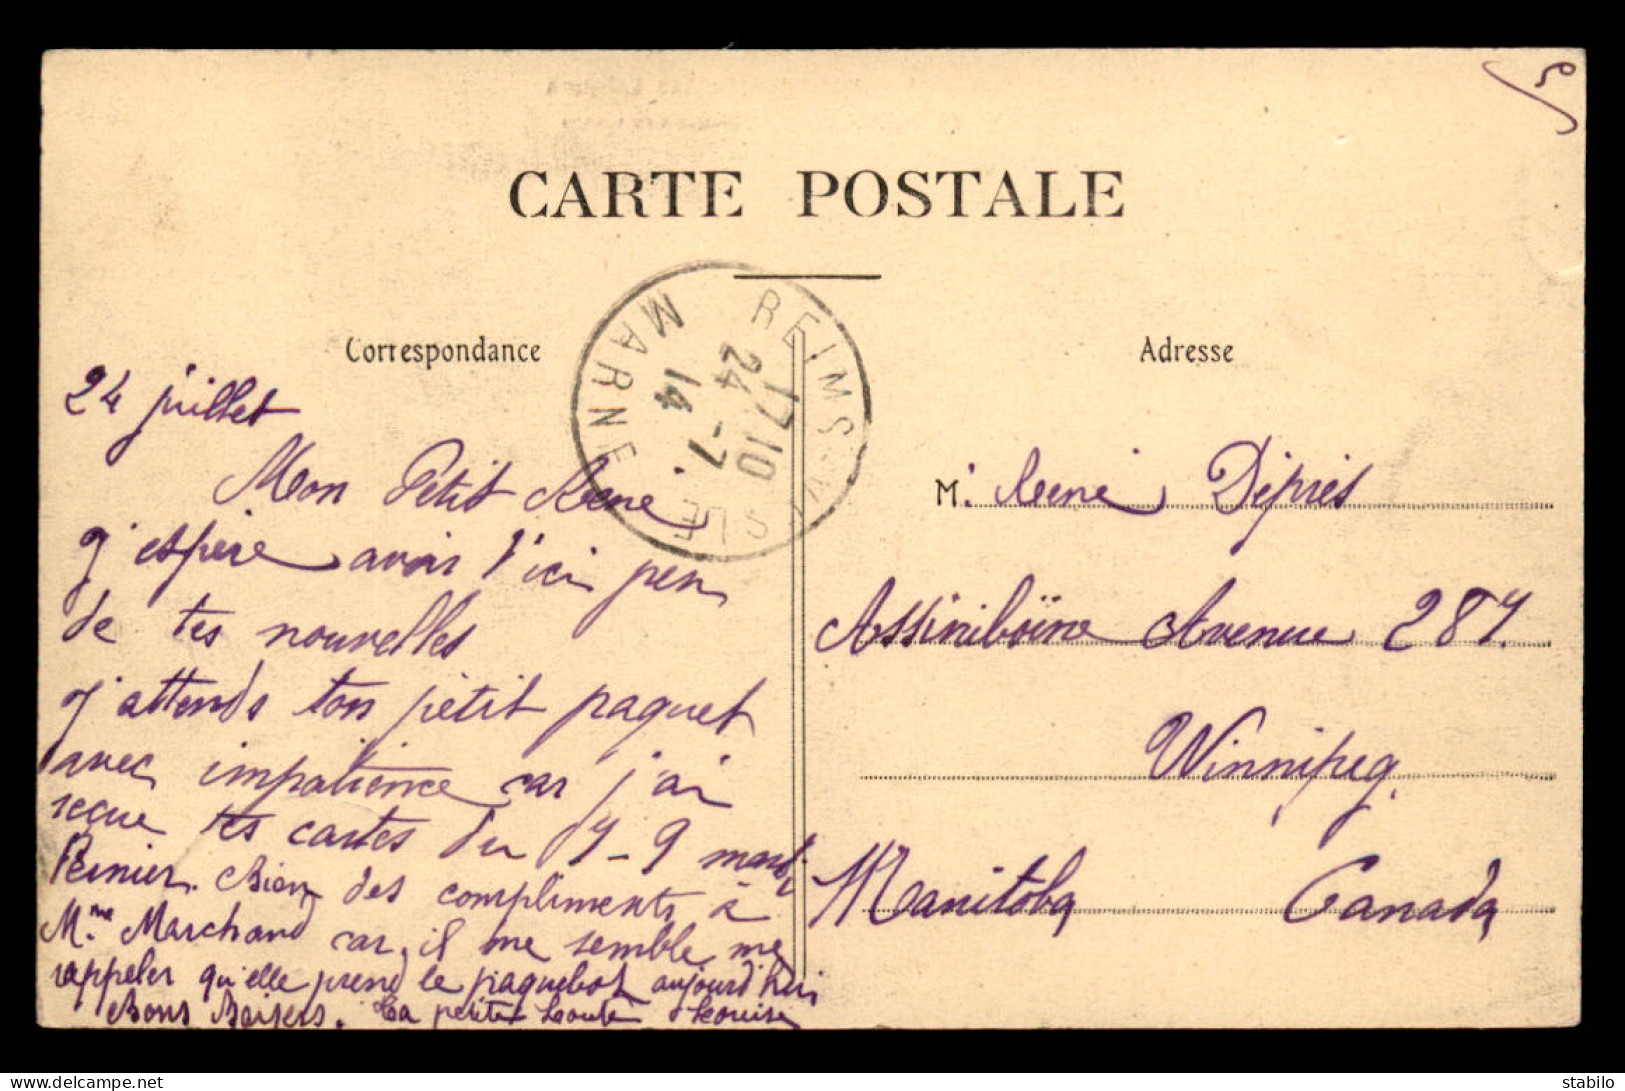 CARTE POSTALE
Correspondance
Adresse
REIMS-VESLE
MARNE
17 10
24 -7
14
24 juillet
Mon Petit Rene
j'espère avoir d'ici peu
de tes nouvelles
j'attends ton pétit paquet
avec impatience car j'ai
reçue tes cartes du 7-9 mardi
dernier. Bien des compliments à
Mme Marchand car, il me semble me
rappeler qu'elle prend le paquebot aujourd'hui
Bons Baisers. Ta petite Louise
M. René Déprés
Assiniboïne Avenue 287.
Winnipeg.
Manitoba Canada
www.delcampe.net
stabilo